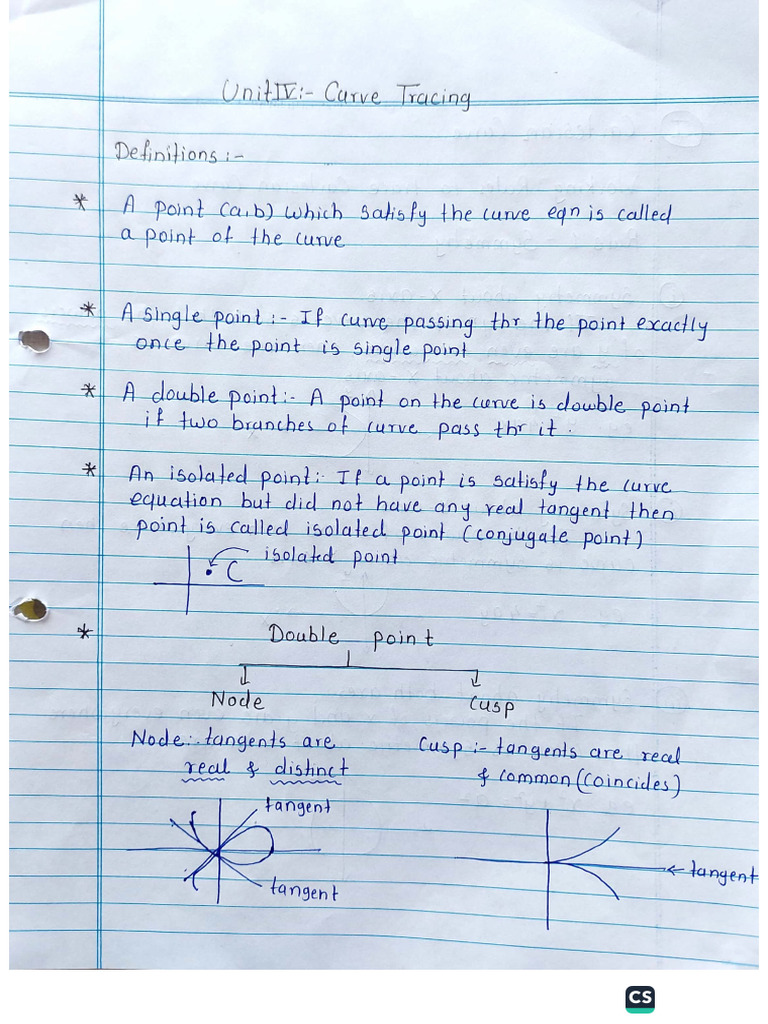 Unit IV:- Curve Tracing
Definitions :-
* A point (a,b) which satisfy the curve eqn is called
a point of the curve
* A single point :- If curve passing thr the point exactly
once the point is single point
* A double point:- A point on the curve is double point
if two branches of curve pass thr it.
* An isolated point:- If a point is satisfy the curve
equation but did not have any real tangent then
point is called isolated point (conjugate point)
isolated point
* Double point
Node Cusp
Node:- tangents are
real & distinct
Cusp :- tangents are real
& common (coincides)
tangent
tangent
tangent
CS